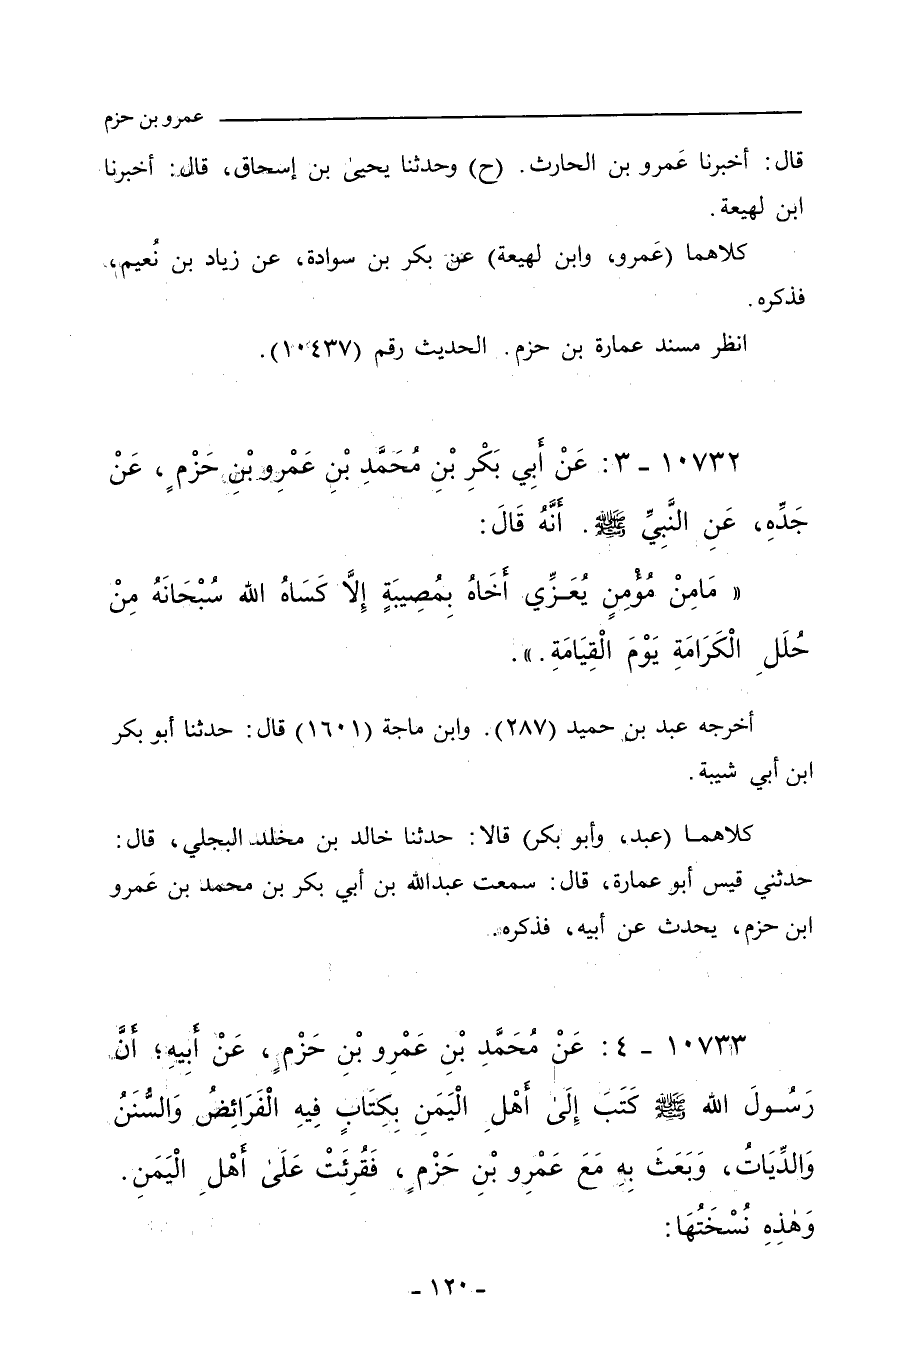 عمرو بن حزم
قال: أخبرنا عَمرو بن الحارث. (ح) وحدثنا يحيىٰ بن إسحاق، قال: أخبرنا
ابن لهيعة.
كلاهما (عَمرو، وابن لهيعة) عن بكر بن سوادة، عن زياد بن نُعيم،
فذكره.
انظر مسند عمارة بن حزم. الحديث رقم (١٠٤٣٧).
١٠٧٣٢ - ٣: عَنْ أَبِي بَكْرِ بْنِ مُحَمَّدِ بْنِ عَمْرِو بْنِ حَزْمٍ، عَنْ
جَدِّهِ، عَنِ النَّبِيِّ ﷺ. أَنَّهُ قَالَ:
« مَامِنْ مُؤْمِنٍ يُعَزِّي أَخَاهُ بِمُصِيبَةٍ إِلَّا كَسَاهُ الله سُبْحَانَهُ مِنْ
حُلَلِ الْكَرَامَةِ يَوْمَ الْقِيَامَةِ.».
أخرجه عبد بن حميد (٢٨٧). وابن ماجة (١٦٠١) قال: حدثنا أبو بكر
ابن أبي شيبة.
كلاهما (عبد، وأبو بكر) قالا: حدثنا خالد بن مخلد البجلي، قال:
حدثني قيس أبو عمارة، قال: سمعت عبدالله بن أبي بكر بن محمد بن عَمرو
ابن حزم، يحدث عن أبيه، فذكره.
١٠٧٣٣ - ٤: عَنْ مُحَمَّدِ بْنِ عَمْرِو بْنِ حَزْمٍ، عَنْ أَبِيهِ؛ أَنَّ
رَسُولَ الله ﷺ كَتَبَ إِلَىٰ أَهْلِ الْيَمَنِ بِكِتَابٍ فِيهِ الْفَرَائِضُ وَالسُّنَنُ
وَالدِّيَاتُ، وَبَعَثَ بِهِ مَعَ عَمْرِو بْنِ حَزْمٍ، فَقُرِئَتْ عَلَىٰ أَهْلِ الْيَمَنِ.
وَهٰذِهِ نُسْخَتُهَا:
- ١٢٠ -